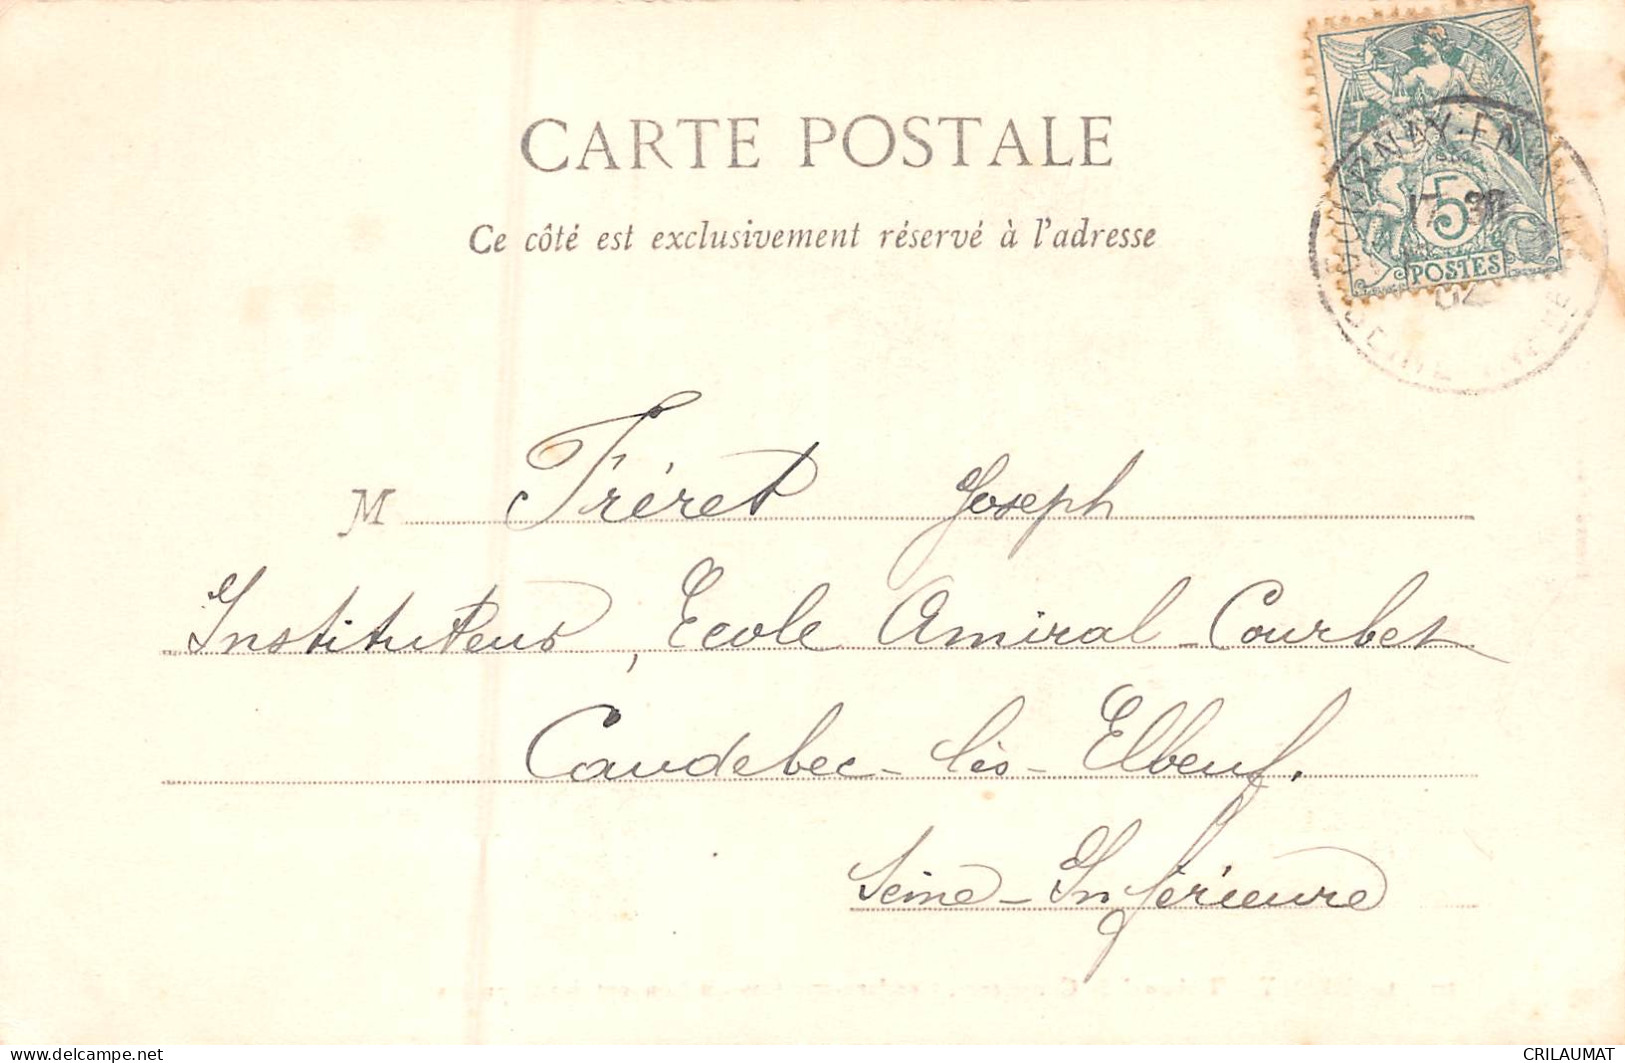 CARTE POSTALE
Ce côté est exclusivement réservé à l'adresse
5
POSTES
02
M Fréret Joseph
Instituteur, Ecole Amiral-Courbet
Caudebec-lès-Elbeuf.
Seine-Inférieure
CRILAUMAT